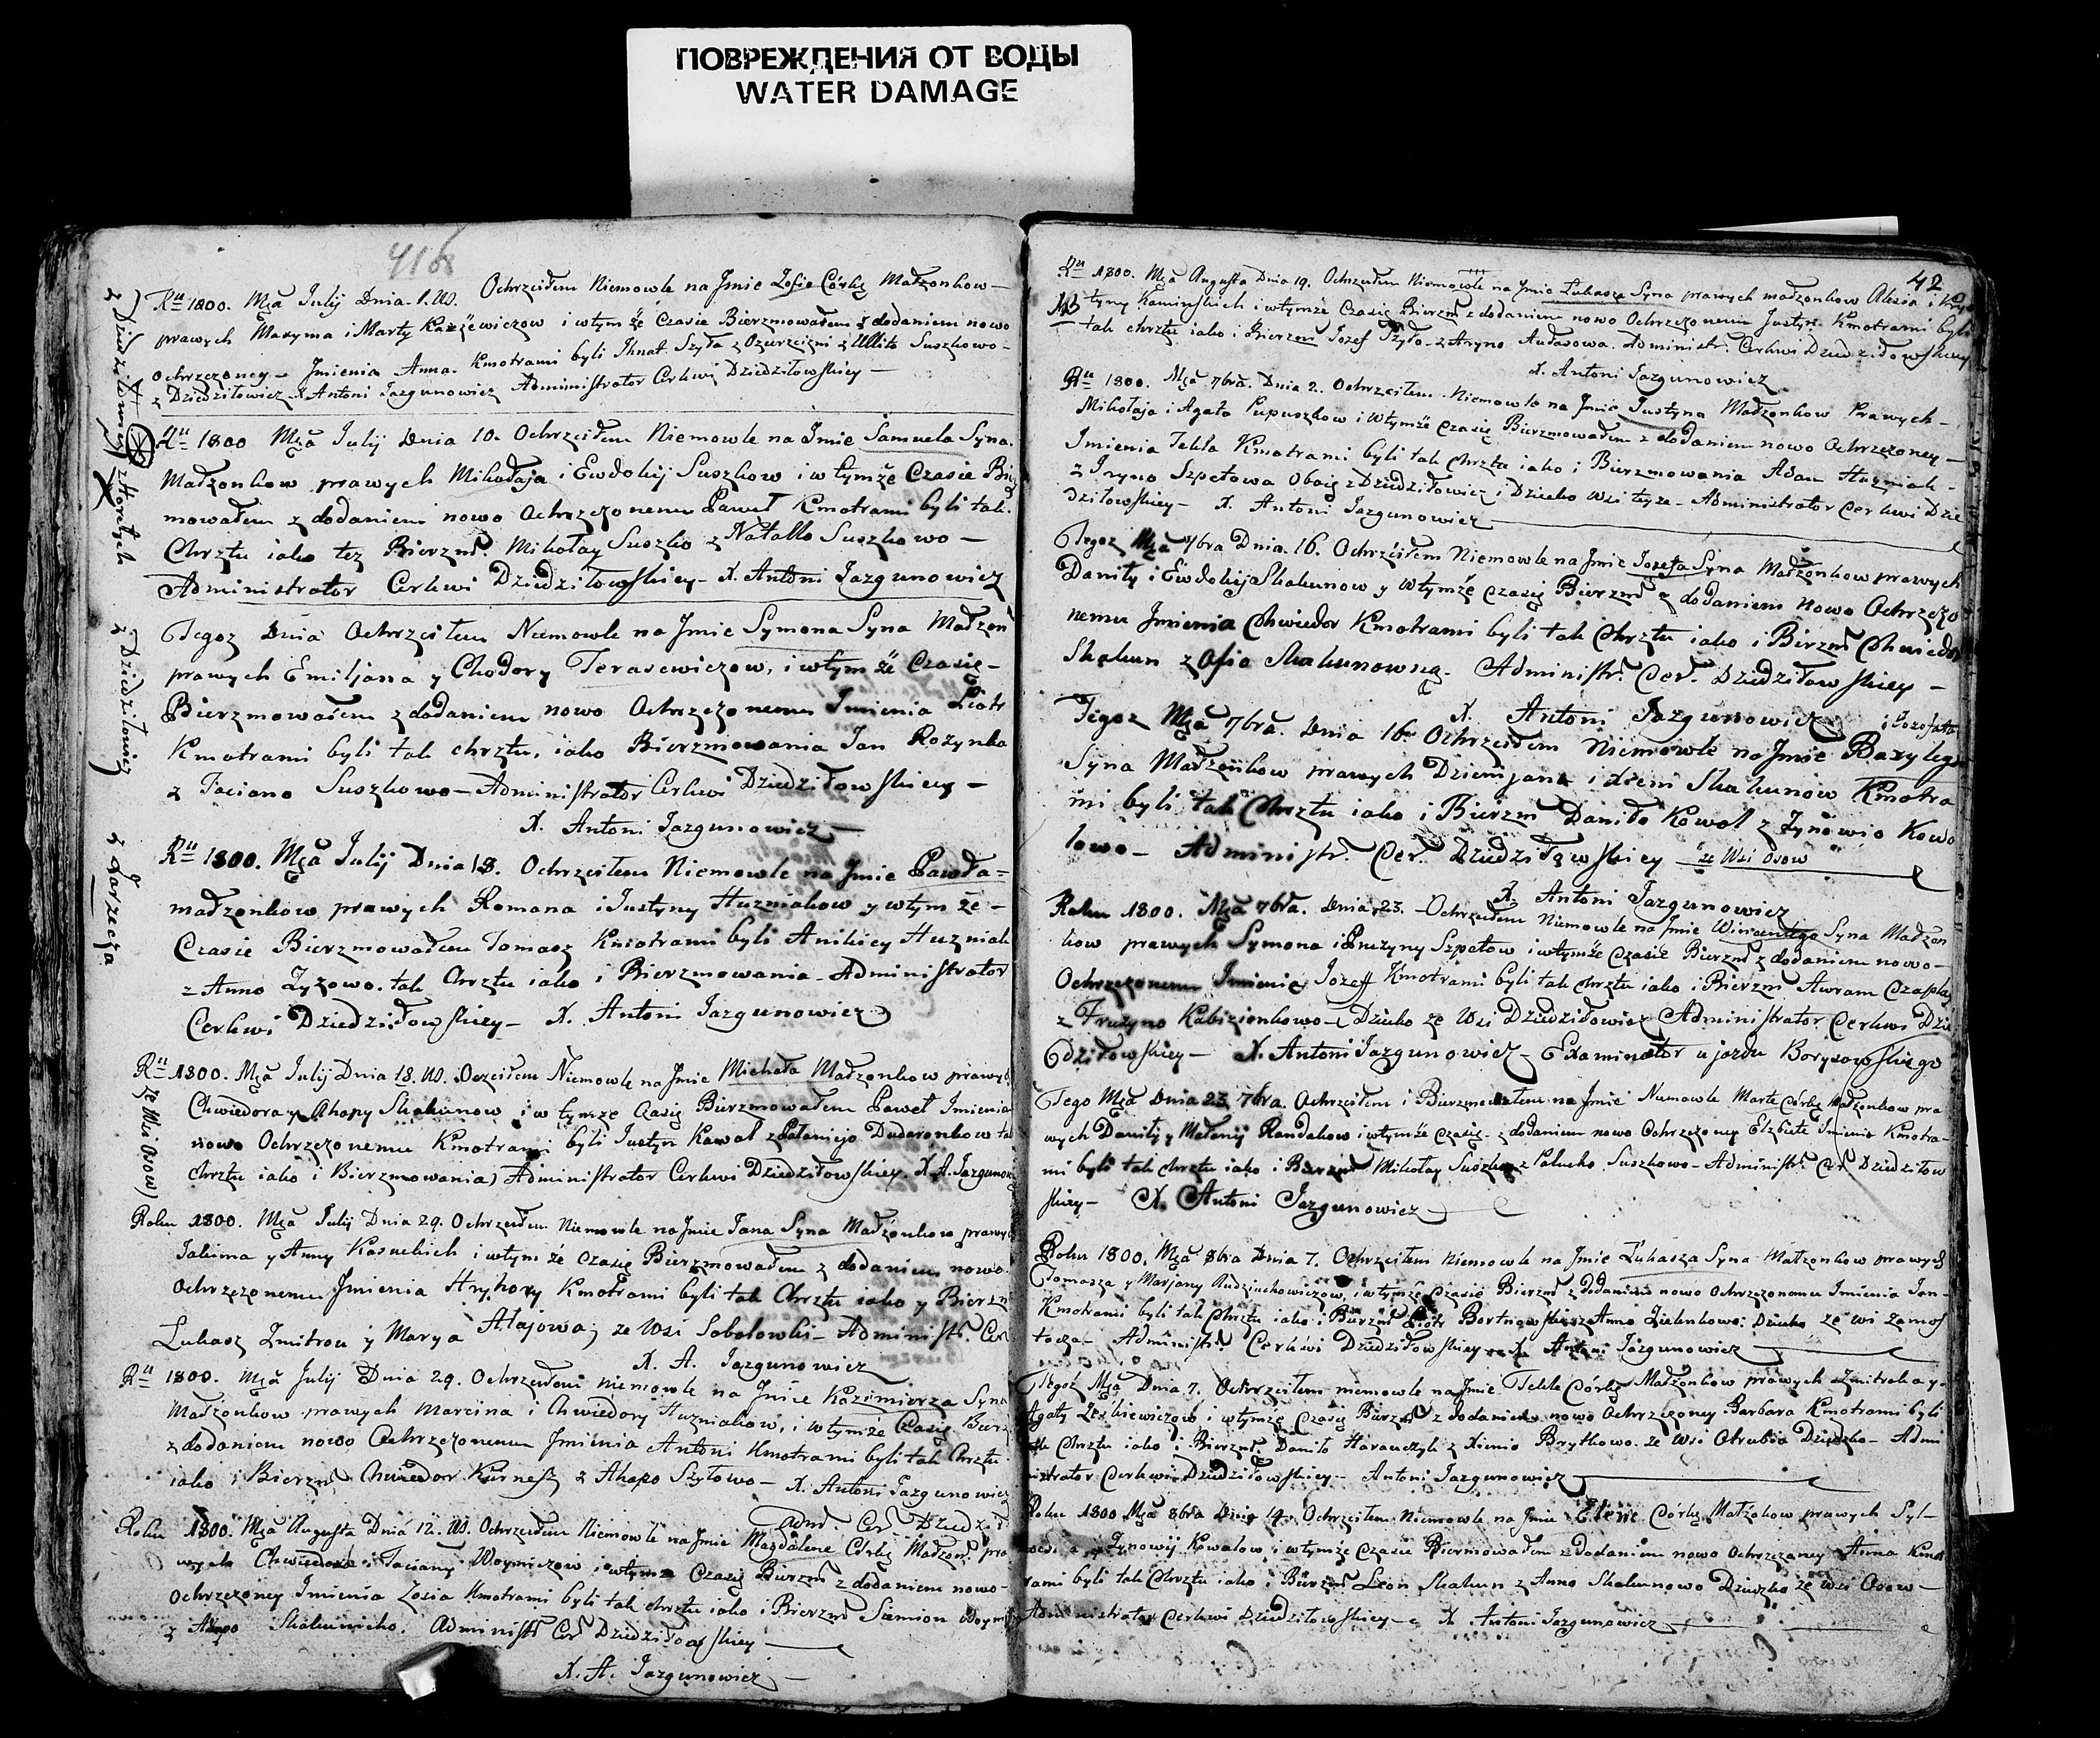 ПОВРЕЖДЕНИЯ ОТ ВОДЫ
WATER DAMAGE
Ru 1800. Mca Julij Dnia Ochrzciłem Niemowle na Jmie Zofie Córkę Małżonkow
prawych Maxyma i Marty i wtym że Czasie Bierzmowałem z dodaniem nowo
ochrzczoney Jmienia Anna. Kmotrami byli Jhnat Szyła z Suszkowo
z Dziedziłowicz X Antoni Jazgunowicz Administrator Cerkwi Dziedziłowskiey
z Dziedziłowicz
Ru 1800 Mca Julij Dnia 10. Ochrzciłem Niemowle na Jmie Samuela Syna
Małżonkow prawych Mikołaja i Ewdokij Suszkow i w tymże Czasie Bierz
mowałem z dodaniem nowo Ochrzczonemu Paweł Kmotrami byli tak
Chrztu iako tez Bierzm. Mikołay Suszko z Natallo Suszkowo
Administrator Cerkwi Dziedziłowskiey X. Antoni Jazgunowicz
Tegoz Dnia Ochrzciłem Niemowle na Jmie Symona Syna Małżon
prawych Emiljana y Chodory Terasewiczow, i wtym że Czasie
Bierzmowałem z dodaniem nowo Ochrzczonemu Jmienia Piotr
Kmotrami byli tak chrztu, iako Bierzmowania Jan Rozynko
z Taciano Suszkowo Administrator Cerkwi Dziedziłowskiey
X. Antoni Jazgunowicz
z Dziedziłowicz
Ru 1800. Mca Julij Dnia 18. Ochrzciłem Niemowle na Jmie Pawła
małżonkow prawych Romana i Justyny Huzniakow y wtym że
Czasie Bierzmowałem Tomasz Kmotrami byli Anikiey Huzniak
z Anno Zyzowo. tak Chrztu iako i Bierzmowania Administrator
Cerkwi Dziedziłowskiey X. Antoni Jazgunowicz
z Zarzecza
Ru 1800. Mca Julij Dnia 18. Niemowle na Jmie Michała Małżonkow prawych
Chwiedora y Ahapy Skakunow i w tymze Czasie Bierzmowałem Paweł Jmienia
nowo Ochrzczonemu Kmotrami byli Justyn Kawal
chrztu iako i Bierzmowania Administrator Cerkwi Dziedziłowskiey. X. A. Jazgunow
ze Wsi Osow
Roku 1800. Mca Julij Dnia 29. Ochrzciłem Niemowle na Jmie Jana Syna Małżonkow prawych
Jakima y Anny i wtym że Czasie Bierzmowałem z dodaniem nowo
Ochrzczonemu Jmienia Hryhory Kmotrami byli tak Chrztu iako y Bierzm
Lukasz Zmitrou y Marya ze Wsi Sobolowki Administr. Cer
X. A. Jazgunowicz
Ru 1800. Mca Julij Dnia 29. Ochrzciłem niemowle na Jmie Kazimierza Syna
Małżonkow prawych Marcina i Chwiedory Huzniakow, i wtymże Czasie Bierz
z dodaniem nowo Ochrzczonemu Jmienia Antoni Kmotrami byli tak Chrztu
iako i Bierzm Chwiedor z Ahapo Szyłowo X. Antoni Jazgunowicz
Adm. Cer Dziedził
Roku 1800. Mca Augusta Dnia 12. Ochrzciłem Niemowle na Jmie Magdalene Córkę Małżon. pra
wych Chwiedora i Taciany i wtymże Czasie Bierzm z dodaniem nowo
Ochrzczoney Jmienia Zosia Kmotrami byli tak chrztu iako i Bierzm Siemion
z Ahapo Administ Cer Dziedziłowskiey
X. A. Jazgunowicz
42
Ru 1800. Mca Augusta Dnia 19. Ochrzciłem Niemowle na Jmie Łukasza Syna prawych małżonkow Alexia i
Kaminskich i wtymże Czasie Bierzm z dodaniem nowo Ochrzczonemu Justyn Kmotrami byli
tak chrztu iako i Bierzm Jozef Szyło z Administr. Cerkwi Dziedziłowskiey
X. Antoni Jazgunowicz
Ru 1800. Mca 7bra. Dnia 2. Ochrzciłem Niemowle na Jmie Justyna Małżonkow Prawych
Mikołaja i Agata i Wtymże Czasie Bierzmowałem z dodaniem nowo Ochrzczoney
Jmienia Tekla Kmotrami byli tak Chrztu iako i Bierzmowania Adam Huzniak
z Jryno Szpetowa Oboie z Dziedziłowicz Dziecko Wsi teyze Administrator Cerkwi Dzie
dziłowskiey X. Antoni Jazgunowicz
Tegoz Mca 7bra Dnia. 16. Ochrzciłem Niemowle na Jmie Jozefa Syna Małżonkow prawych
Daniły i Ewdokij Skakunow y wtymże Czasie Bierzm z dodaniem nowo Ochrzczo
nemu Jmienia Chwiedor Kmotrami byli tak Chrztu iako i Bierzm Chwiedor
Skakun z Ofio Skakunowną. Administr. Cer. Dziedziłowskiey
X. Antoni Jazgunowicz
Tegoz Mca 7bra. Dnia 16 Ochrzciłem Niemowle na Jmie Bazylego i Jozofata
Syna Małżonkow prawych Dziemjana i Skakunow Kmotra
mi byli tak Chrztu iako i Bierzm Daniło Kowal z Zynowio Kowa
lowo Administr. Cer. Dziedziłowskiey ze Wsi Osow
X. Antoni Jazgunowicz
Roku 1800. Mca 7bra. Dnia 23. Ochrzciłem Niemowle na Jmie Wincentego Syna Małżon
kow prawych Symona i Pruzyny Szpetow i wtymże Czasie Bierzm z dodaniem nowo
Ochrzczonemu Jmienia Jozeff Kmotrami byli tak chrztu iako i Bierzm Awram Czaplay
z Dziecko ze Wsi Dziedziłowicz Administrator Cerkwi Dzie
dziłowskiey X. Antoni Jazgunowicz Examinator ujazdu Borysowskiego
Tego Mca Dnia 23 7bra. Ochrzciłem i Bierzmowałem na Jmie Niemowle Marte Córkę Małżonkow pra
wych Daniły y Małanij Randakow i wtymże Czasie z dodaniem nowo Ochrzczoney Elzbieta Jmienia Kmotra
mi byli tak chrztu iako i Bierzm Mikołay Suszko z Suszkowo Administr. Cer Dziedziłow
skiey X. Antoni Jazgunowicz
Roku 1800. Mca 8bra Dnia 7. Ochrzciłem Niemowle na Jmie Łukasza Syna Małżonkow prawych
Tomasza y Marjany i wtymże Czasie Bierzm z Dodaniem nowo Ochrzczonemu Jmienia Jan
Kmotrami byli tak Chrztu iako i Bierzm Piotr Bortnowski z Anno Zielenkowo: Dziecko ze wsi Zamos
tocza Administr. Cerkwi Dziedziłowskiey X. Antoni Jazgunowicz
Tegoż Mca Dnia 7. Ochrzciłem niemowle na Jmie Tekle Córkę Małżonkow prawych Zmitroka y
Agaty i wtymże Czasie Bierzm z dodaniem nowo Ochrzczoney Barbara Kmotrami byli
tak Chrztu iako i Bierzm. Daniło Harauczyk z Xienio Brytkowo. ze Wsi Otrubia Dziecko Admi
nistrator Cerkwi Dziedziłowskiey Antoni Jazgunowicz
Roku 1800 Mca 8bra Dnia 14. Ochrzciłem Niemowle na Jmie Elene Córkę Małżonkow prawych Syl
Zynowij Kowalow i wtymże Czasie Bierzmowałem z Dodaniem nowo Ochrzczoney Anna Kmot
rami byli tak Chrztu iako i Bierzm Leon Skakun z Anno Skakunowo Dziecko ze Wsi Osow
Administrator Cerkwi Dziedziłowskiey X Antoni Jazgunowicz